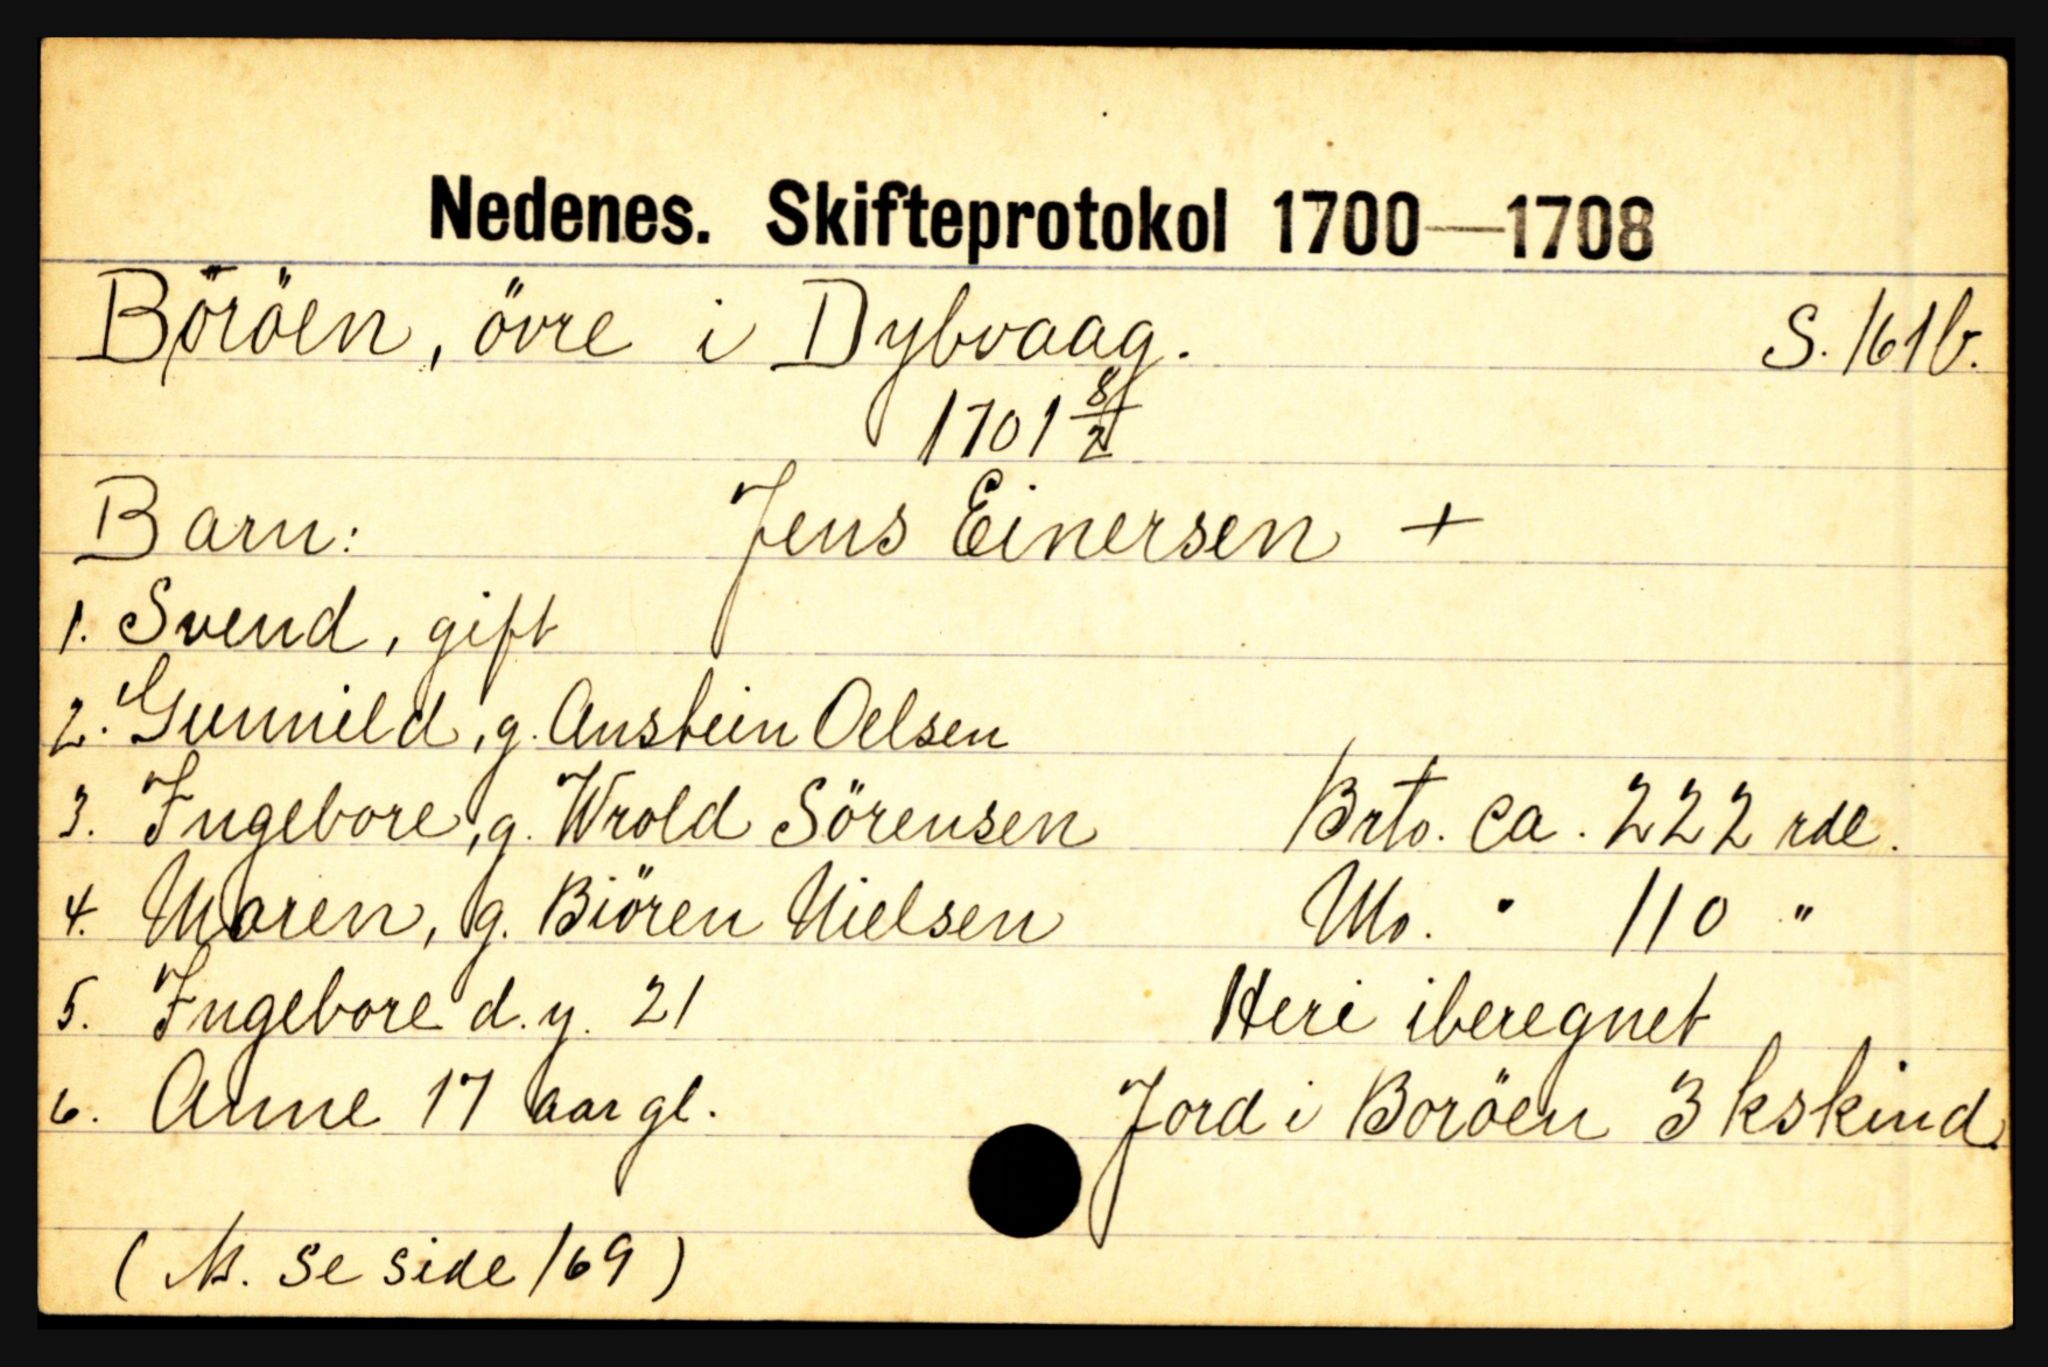 Nedenes. Skifteprotokol 1700—1708
Böröen, övre i Dybvaag. S. 161b.
1701 8/2
Barn: Jens Einersen +
1. Svend, gift
2. Gunnild, g. Anstein Oelsen
3. Ingebore, g. Wrold Sörensen Brto. ca. 222 rdl.
4. Maren, g. Biören Nielsen No. " 110 "
5. Ingebore d.y. 21 Heri iberegnet
6. Anne 17 aar gl. Jord i Boröen 3 kskind.
( N. se side 169 )